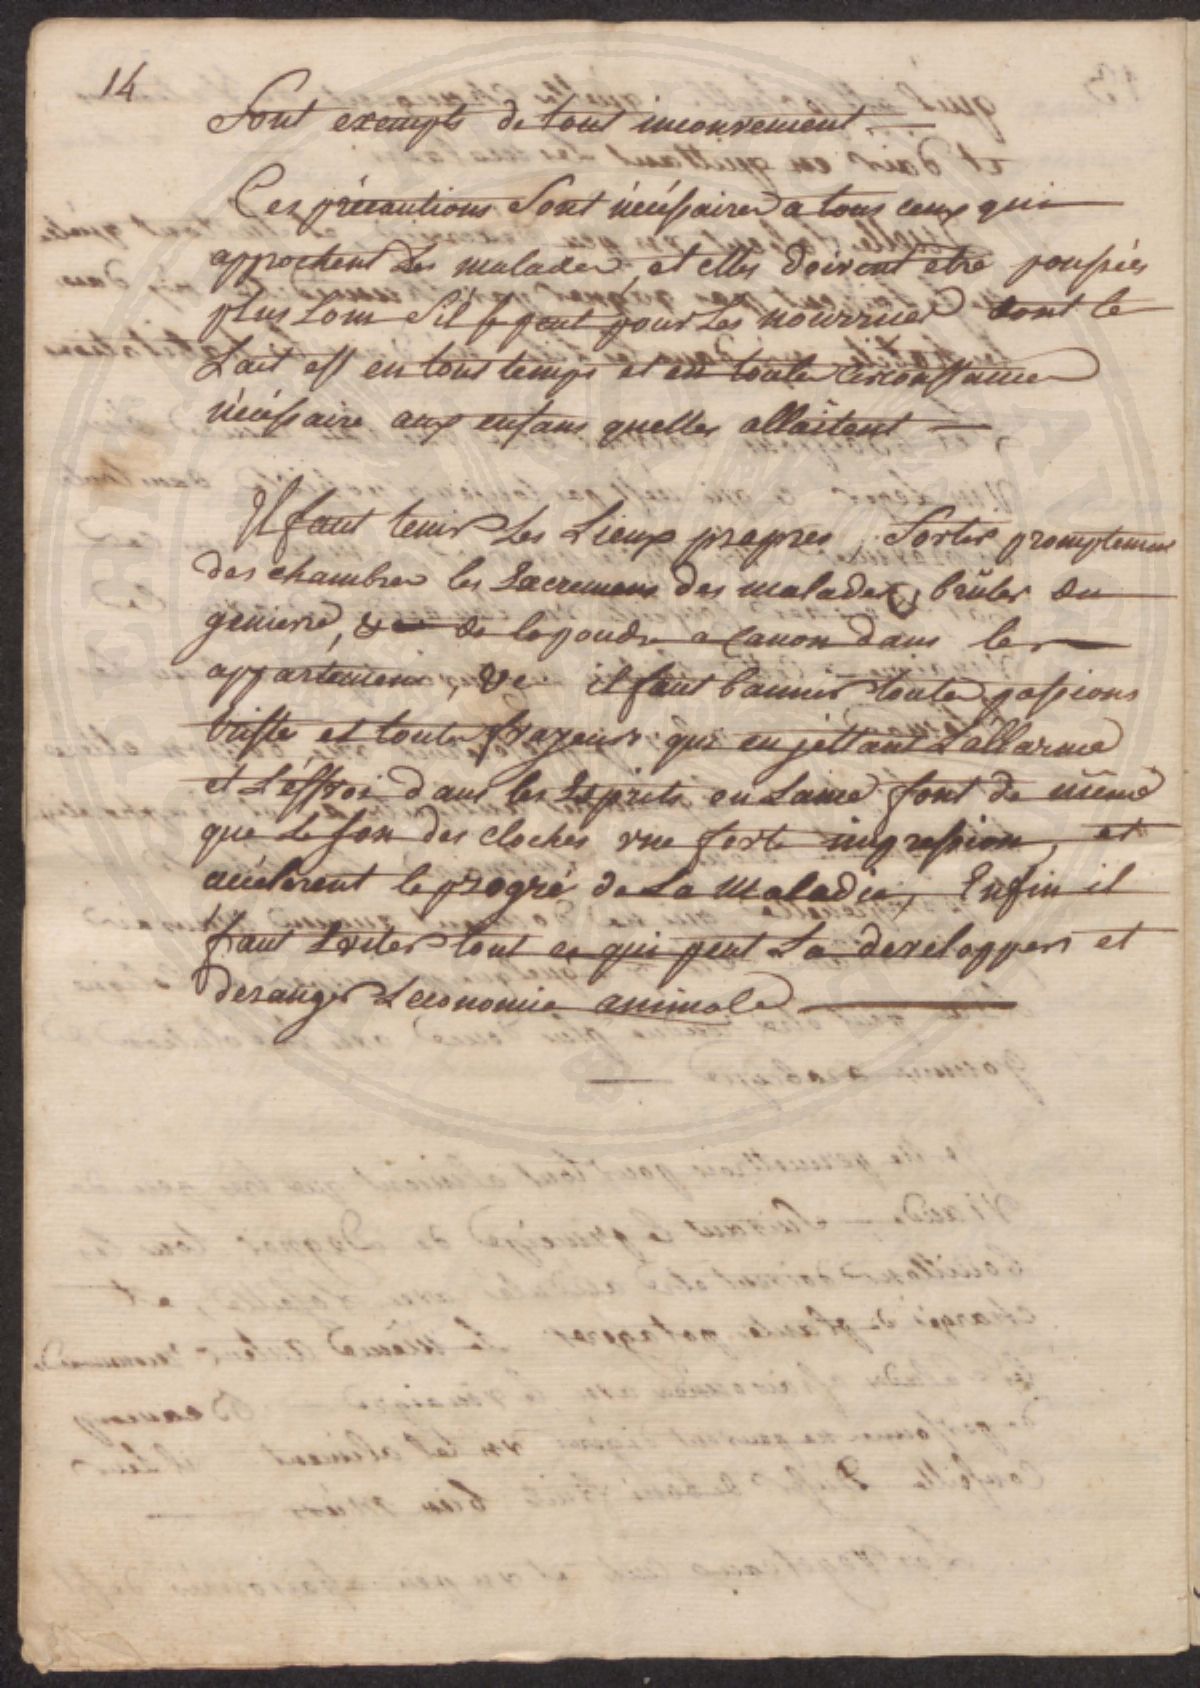 14
Sont exempts de tout inconvenient
Ces précautions Sont nécéssaires a tous ceux qui
approchent Les malades, et elles doivent être poussées
plus Loin S'il se peut pour Les nourrices dont le
Lait est en tous temps et en toutes Circonstances
nécéssaire aux enfans quelles allaitent
Il faut tenir Les Lieux propres, Sortir promptement
des chambres les Excremens des malades, brûler du
genievre, de la poudre a Canon dans les
appartemens, &c il faut bannir toutes passions
triste et toutes frayeurs qui en jettant L'allarme
et L'éffroi dans les Esprits ou Lame font de même
que Le son des cloches une forte impression, et
accélerent le progré de La Maladie, Enfin il
faut Eviter tout ce qui peut La developper et
deranger L'economie animale